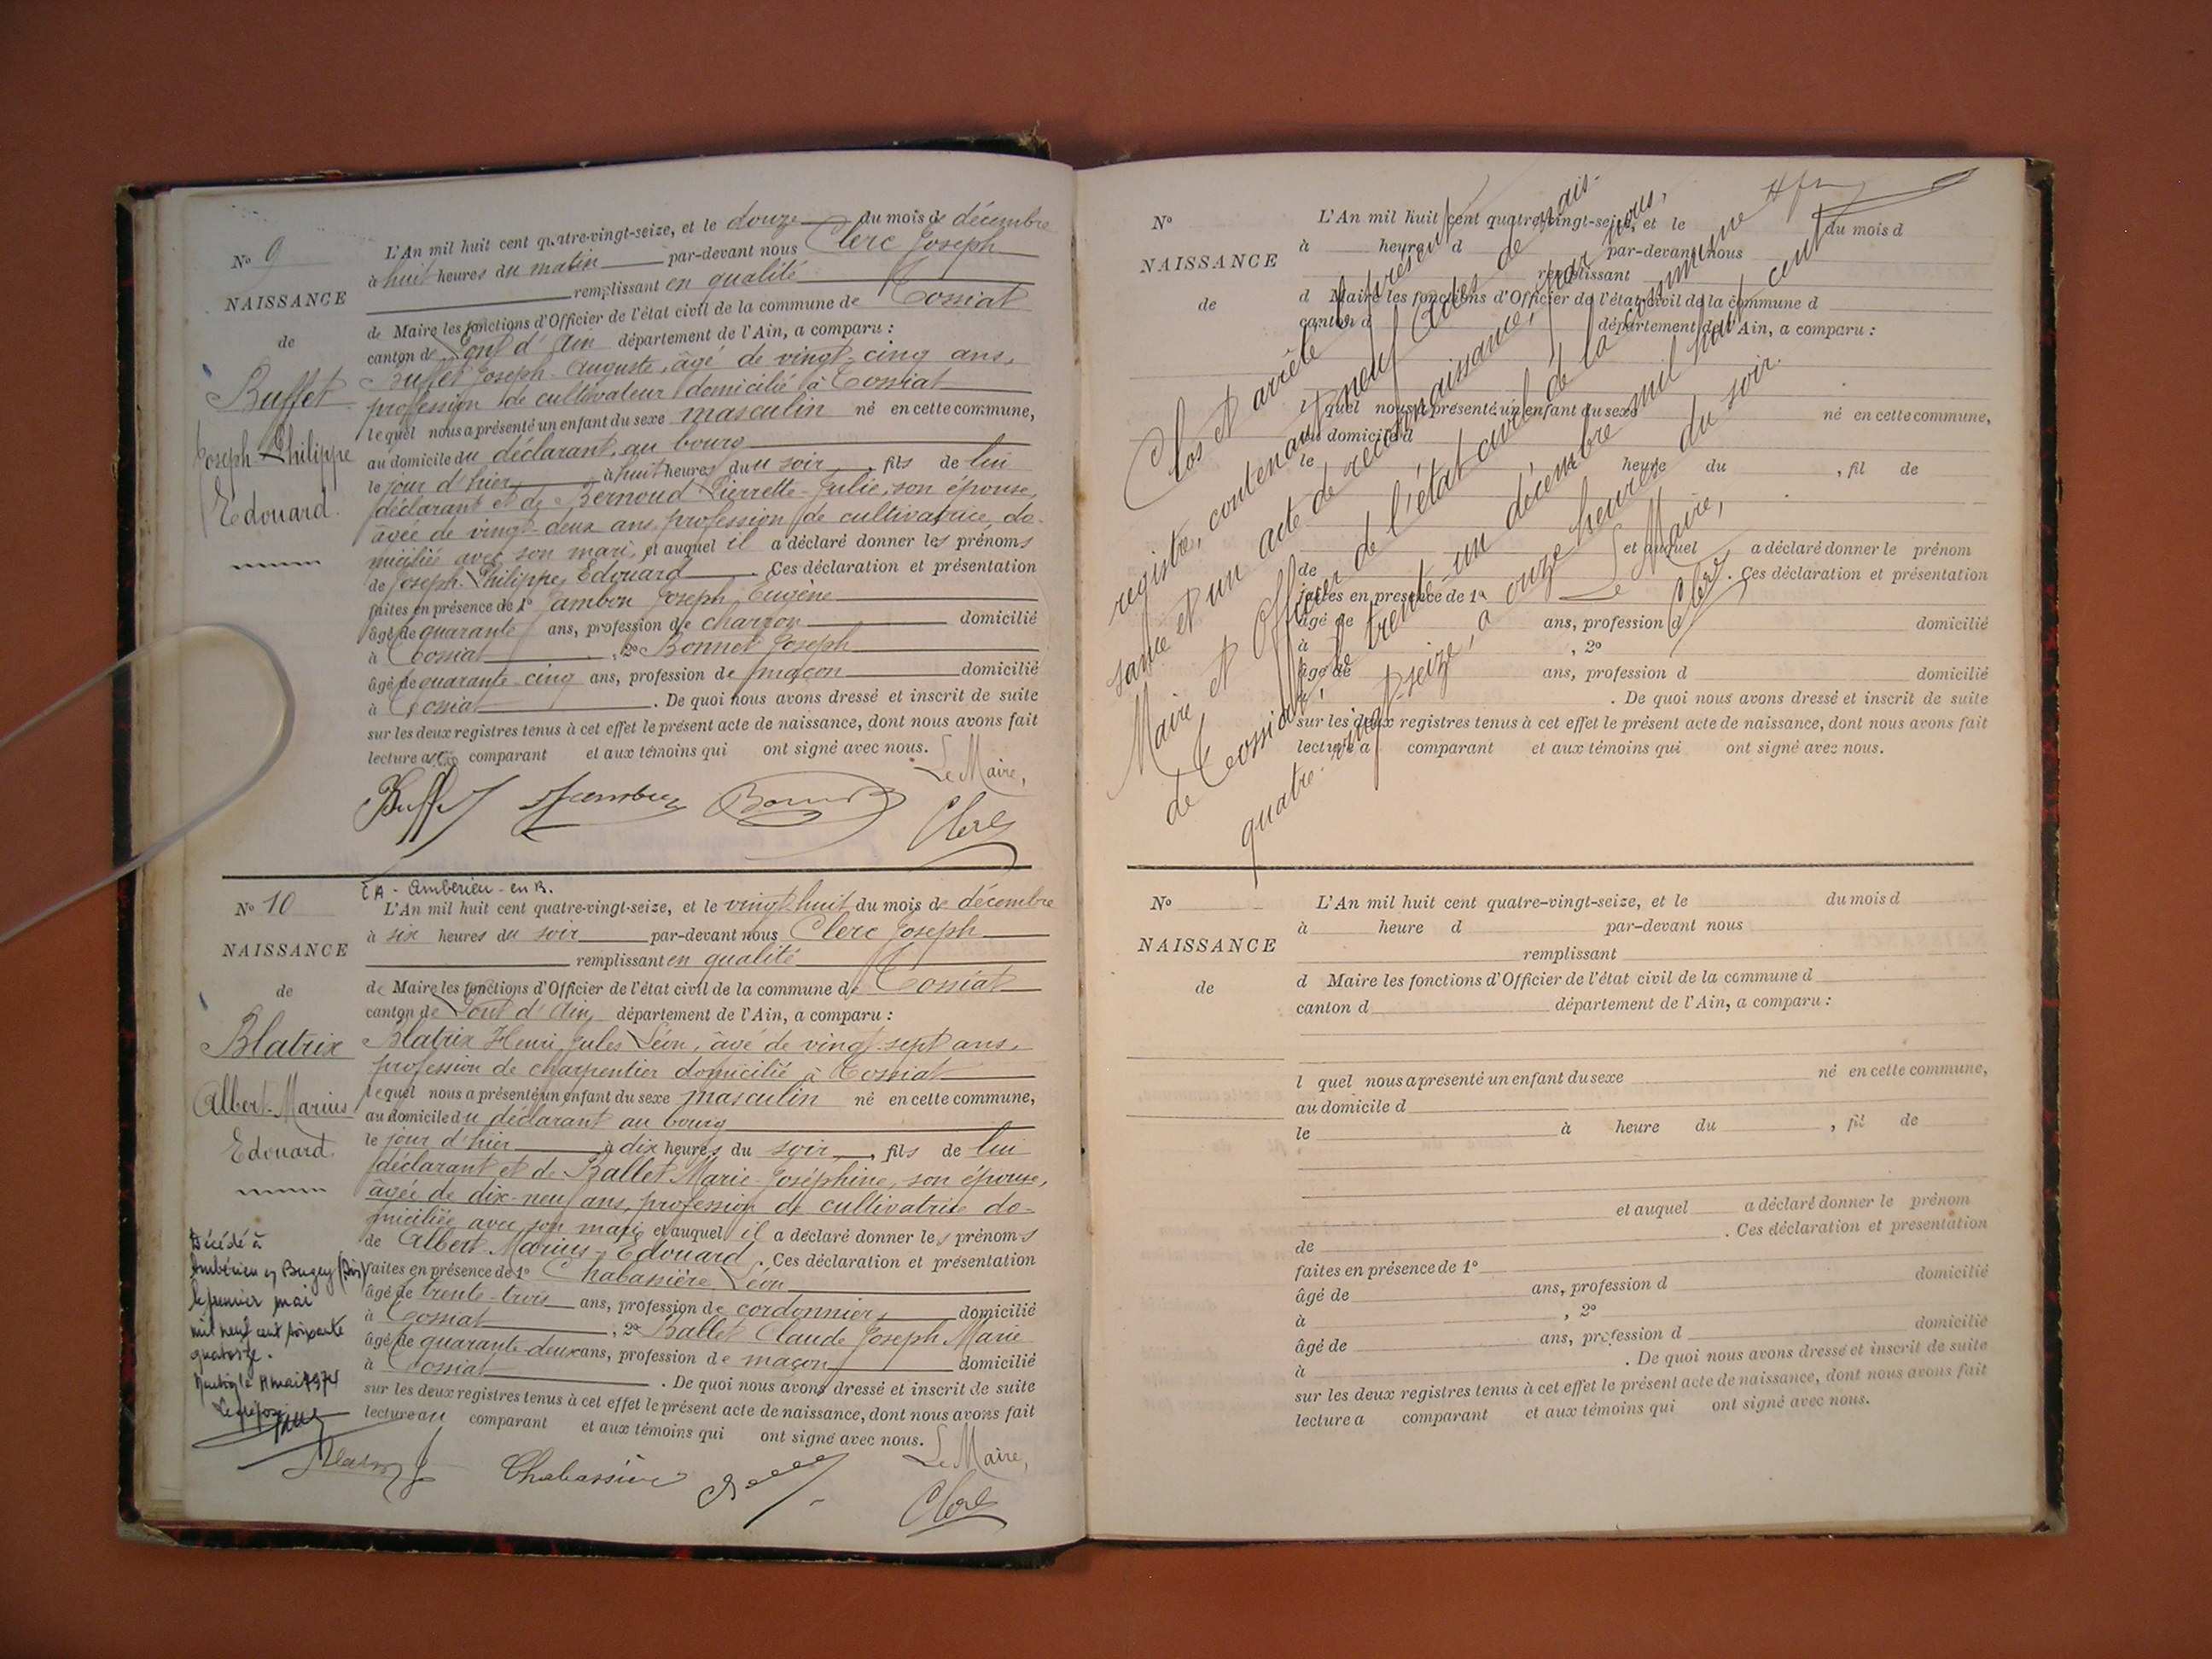 N° 9
NAISSANCE
de
Buffet
Joseph-Philippe
Edouard.
L'An mil huit cent quatre-vingt-seize, et le douze du mois de décembre
à huit heures du matin par-devant nous Clerc Joseph
remplissant en qualité
de Maire les fonctions d'Officier de l'état civil de la commune de Tossiat
canton de Pont d'Ain département de l'Ain, a comparu :
Buffet Joseph-Auguste, âgé de vingt-cinq ans,
profession de cultivateur domicilié à Tossiat
lequel nous a présenté un enfant du sexe masculin né en cette commune,
au domicile du déclarant, au bourg
le jour d'hier à huit heures du soir, fils de lui
déclarant et de Bernoud Pierrette-Julie, son épouse,
âgée de vingt-deux ans, profession de cultivatrice, do-
miciliée avec son mari, et auquel il a déclaré donner les prénoms
de Joseph-Philippe, Edouard. Ces déclaration et présentation
faites en présence de 1° Jambon Joseph Eugène
âgé de quarante ans, profession de charron domicilié
à Tossiat, 2° Bonnet Joseph
âgé de quarante-cinq ans, profession de maçon domicilié
à Tossiat. De quoi nous avons dressé et inscrit de suite
sur les deux registres tenus à cet effet le présent acte de naissance, dont nous avons fait
lecture au comparant et aux témoins qui ont signé avec nous.
Le Maire,
Buffet Jambon Bonnet Clerc
N° 10
NAISSANCE
de
Blatrix
Albert-Marius
Edouard.
Décédé à
Ambérieu en Bugey (Ain)
le premier mai
mil neuf cent soixante
quatorze.
mai 1974
A - Ambérieu-en-B.
L'An mil huit cent quatre-vingt-seize, et le vingt-huit du mois de décembre
à six heures du soir par-devant nous Clerc Joseph
remplissant en qualité
de Maire les fonctions d'Officier de l'état civil de la commune de Tossiat
canton de Pont d'Ain département de l'Ain, a comparu :
Blatrix Henri Jules Léon, âgé de vingt-sept ans,
profession de charpentier domicilié à Tossiat
lequel nous a présenté un enfant du sexe masculin né en cette commune,
au domicile du déclarant au bourg
le jour d'hier à dix heures du soir, fils de lui
déclarant et de Ballet Marie-Joséphine, son épouse,
âgée de dix-neuf ans, profession de cultivatrice do-
miciliée avec son mari, et auquel il a déclaré donner les prénoms
de Albert-Marius-Edouard. Ces déclaration et présentation
faites en présence de 1° Chabassière Léon
âgé de trente-trois ans, profession de cordonnier, domicilié
à Tossiat, 2° Ballet Claude Joseph Marie
âgé de quarante-deux ans, profession de maçon domicilié
à Tossiat. De quoi nous avons dressé et inscrit de suite
sur les deux registres tenus à cet effet le présent acte de naissance, dont nous avons fait
lecture au comparant et aux témoins qui ont signé avec nous.
Le Maire,
Chabassière Clerc
N°
NAISSANCE
de
L'An mil huit cent quatre-vingt-seize, et le du mois d
à heure d par-devant nous
remplissant
d Maire les fonctions d'Officier de l'état civil de la commune d
canton d département de l'Ain, a comparu :
l quel nous a présenté un enfant du sexe né en cette commune,
au domicile d
le heure du , fil de
et auquel a déclaré donner le prénom
de . Ces déclaration et présentation
faites en présence de 1°
âgé de ans, profession d domicilié
à , 2°
âgé de ans, profession d domicilié
à . De quoi nous avons dressé et inscrit de suite
sur les deux registres tenus à cet effet le présent acte de naissance, dont nous avons fait
lecture a comparant et aux témoins qui ont signé avec nous.
Clos et arrêté le présent
registre, contenant neuf actes de nais-
sance et un acte de reconnaissance, par nous,
Maire et Officier de l'état civil de la commune
de Tossiat, le trente-un décembre mil huit cent
quatre-vingt-seize, à onze heures du soir.
Le Maire,
Clerc
N°
NAISSANCE
de
L'An mil huit cent quatre-vingt-seize, et le du mois d
à heure d par-devant nous
remplissant
d Maire les fonctions d'Officier de l'état civil de la commune d
canton d département de l'Ain, a comparu :
l quel nous a présenté un enfant du sexe né en cette commune,
au domicile d
le à heure du , fil de
et auquel a déclaré donner le prénom
de . Ces déclaration et présentation
faites en présence de 1°
âgé de ans, profession d domicilié
à , 2°
âgé de ans, profession d domicilié
à . De quoi nous avons dressé et inscrit de suite
sur les deux registres tenus à cet effet le présent acte de naissance, dont nous avons fait
lecture a comparant et aux témoins qui ont signé avec nous.